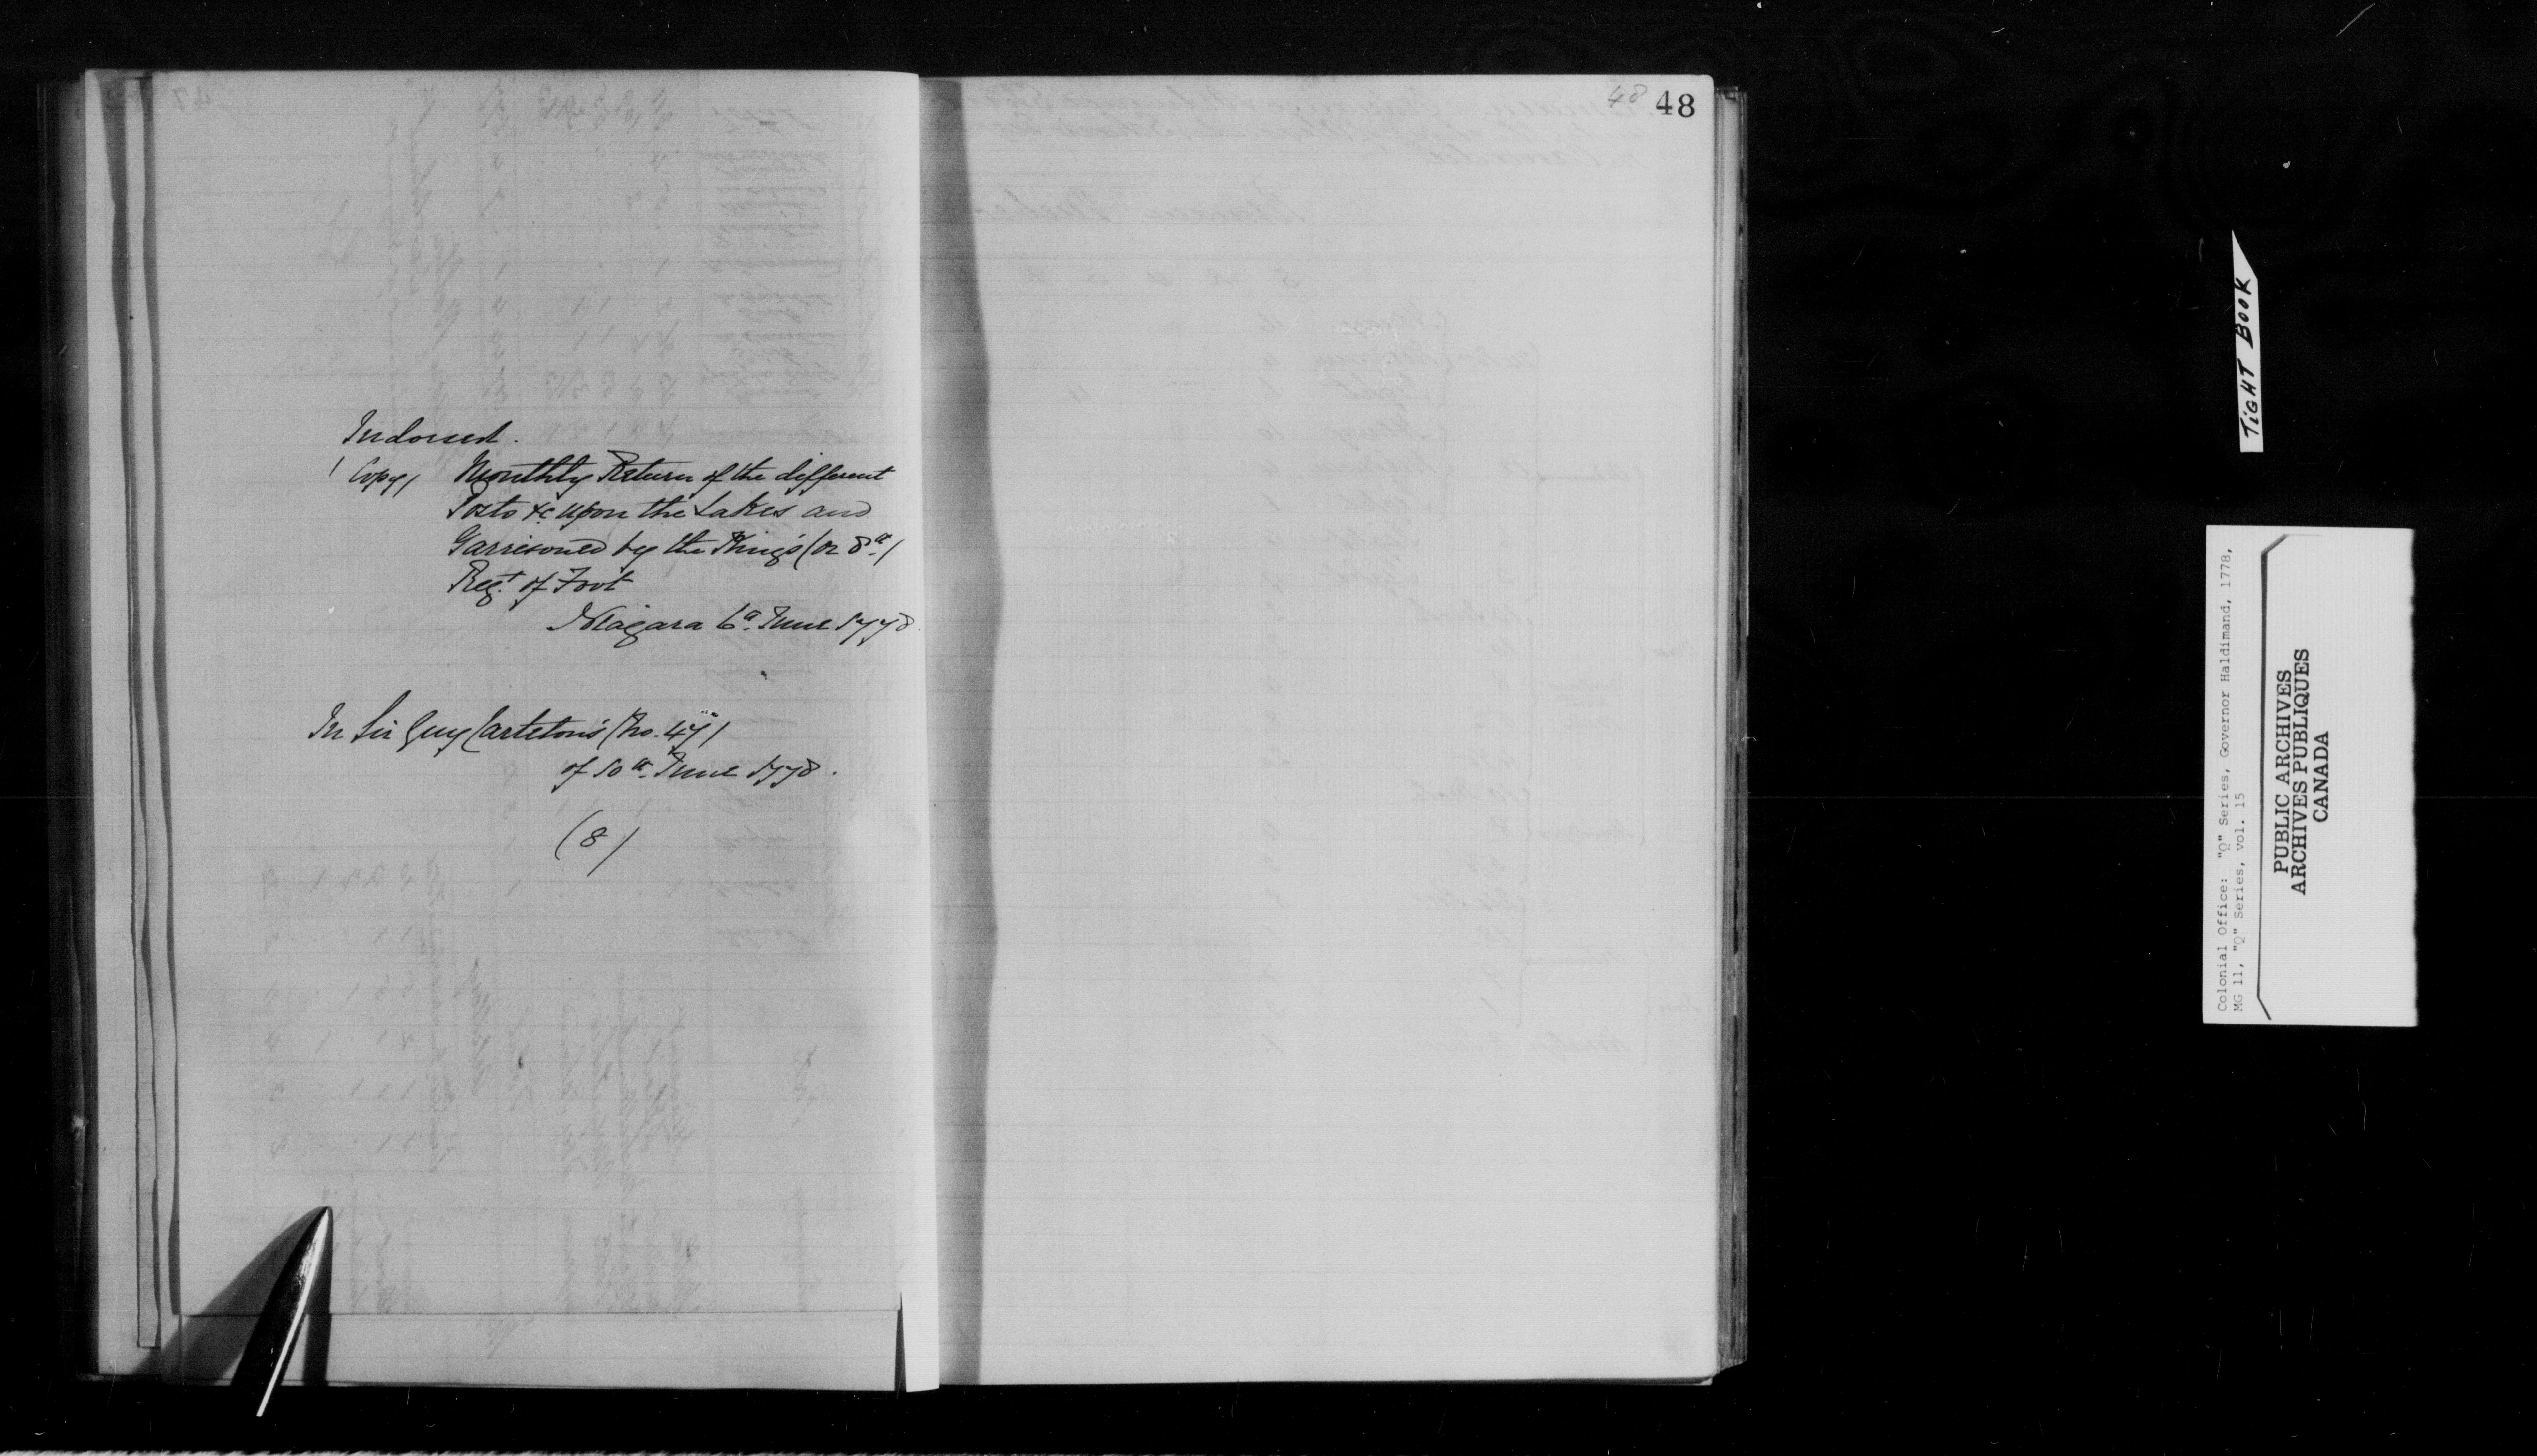 Indorsed.
(Copy) Monthly Return of the different
Posts &c upon the Lakes and
Garrisoned by the King's (or 8th)
Regt of Foot
Niagara 6th June 1778.
In Sir Guy Carleton's (No. 47)
of 10th June 1778.
(8)
48
48
TIGHT BOOK
Colonial Office: "Q" Series, Governor Haldimand, 1778,
MG 11, "Q" Series, vol. 15
PUBLIC ARCHIVES
ARCHIVES PUBLIQUES
CANADA